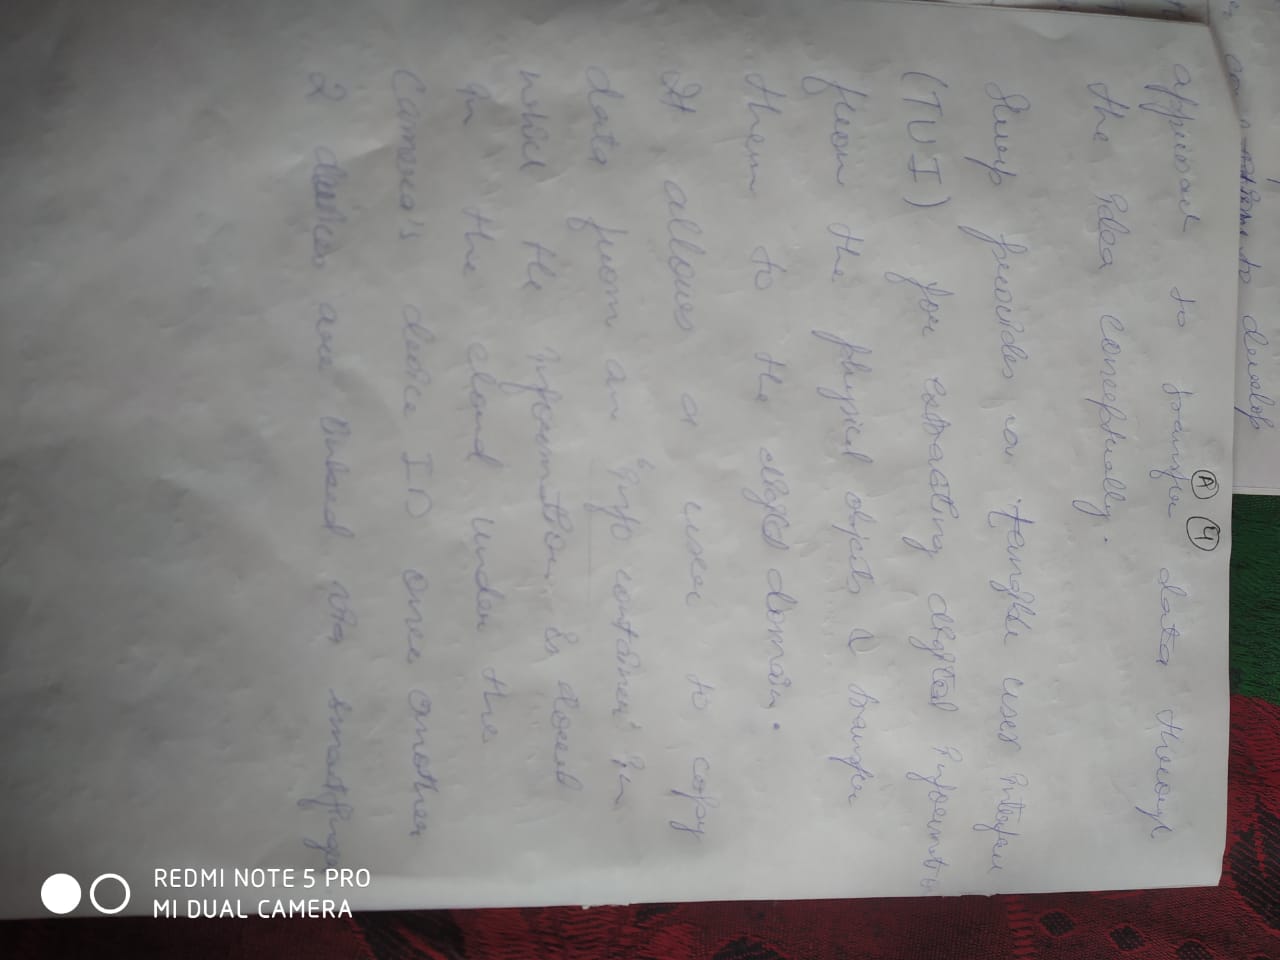 A 4
approach to transfer data through
the idea conceptually.
provides a tangible user interface
(TUI) for extracting digital informatio
from the physical objects & transfer
them to the digital domain.
It allows a user to copy
data from an "info container" in
which the information is stored
in the cloud under the
Camera's device ID once another
2 devices are linked via smartfinger
to develop
REDMI NOTE 5 PRO
MI DUAL CAMERA